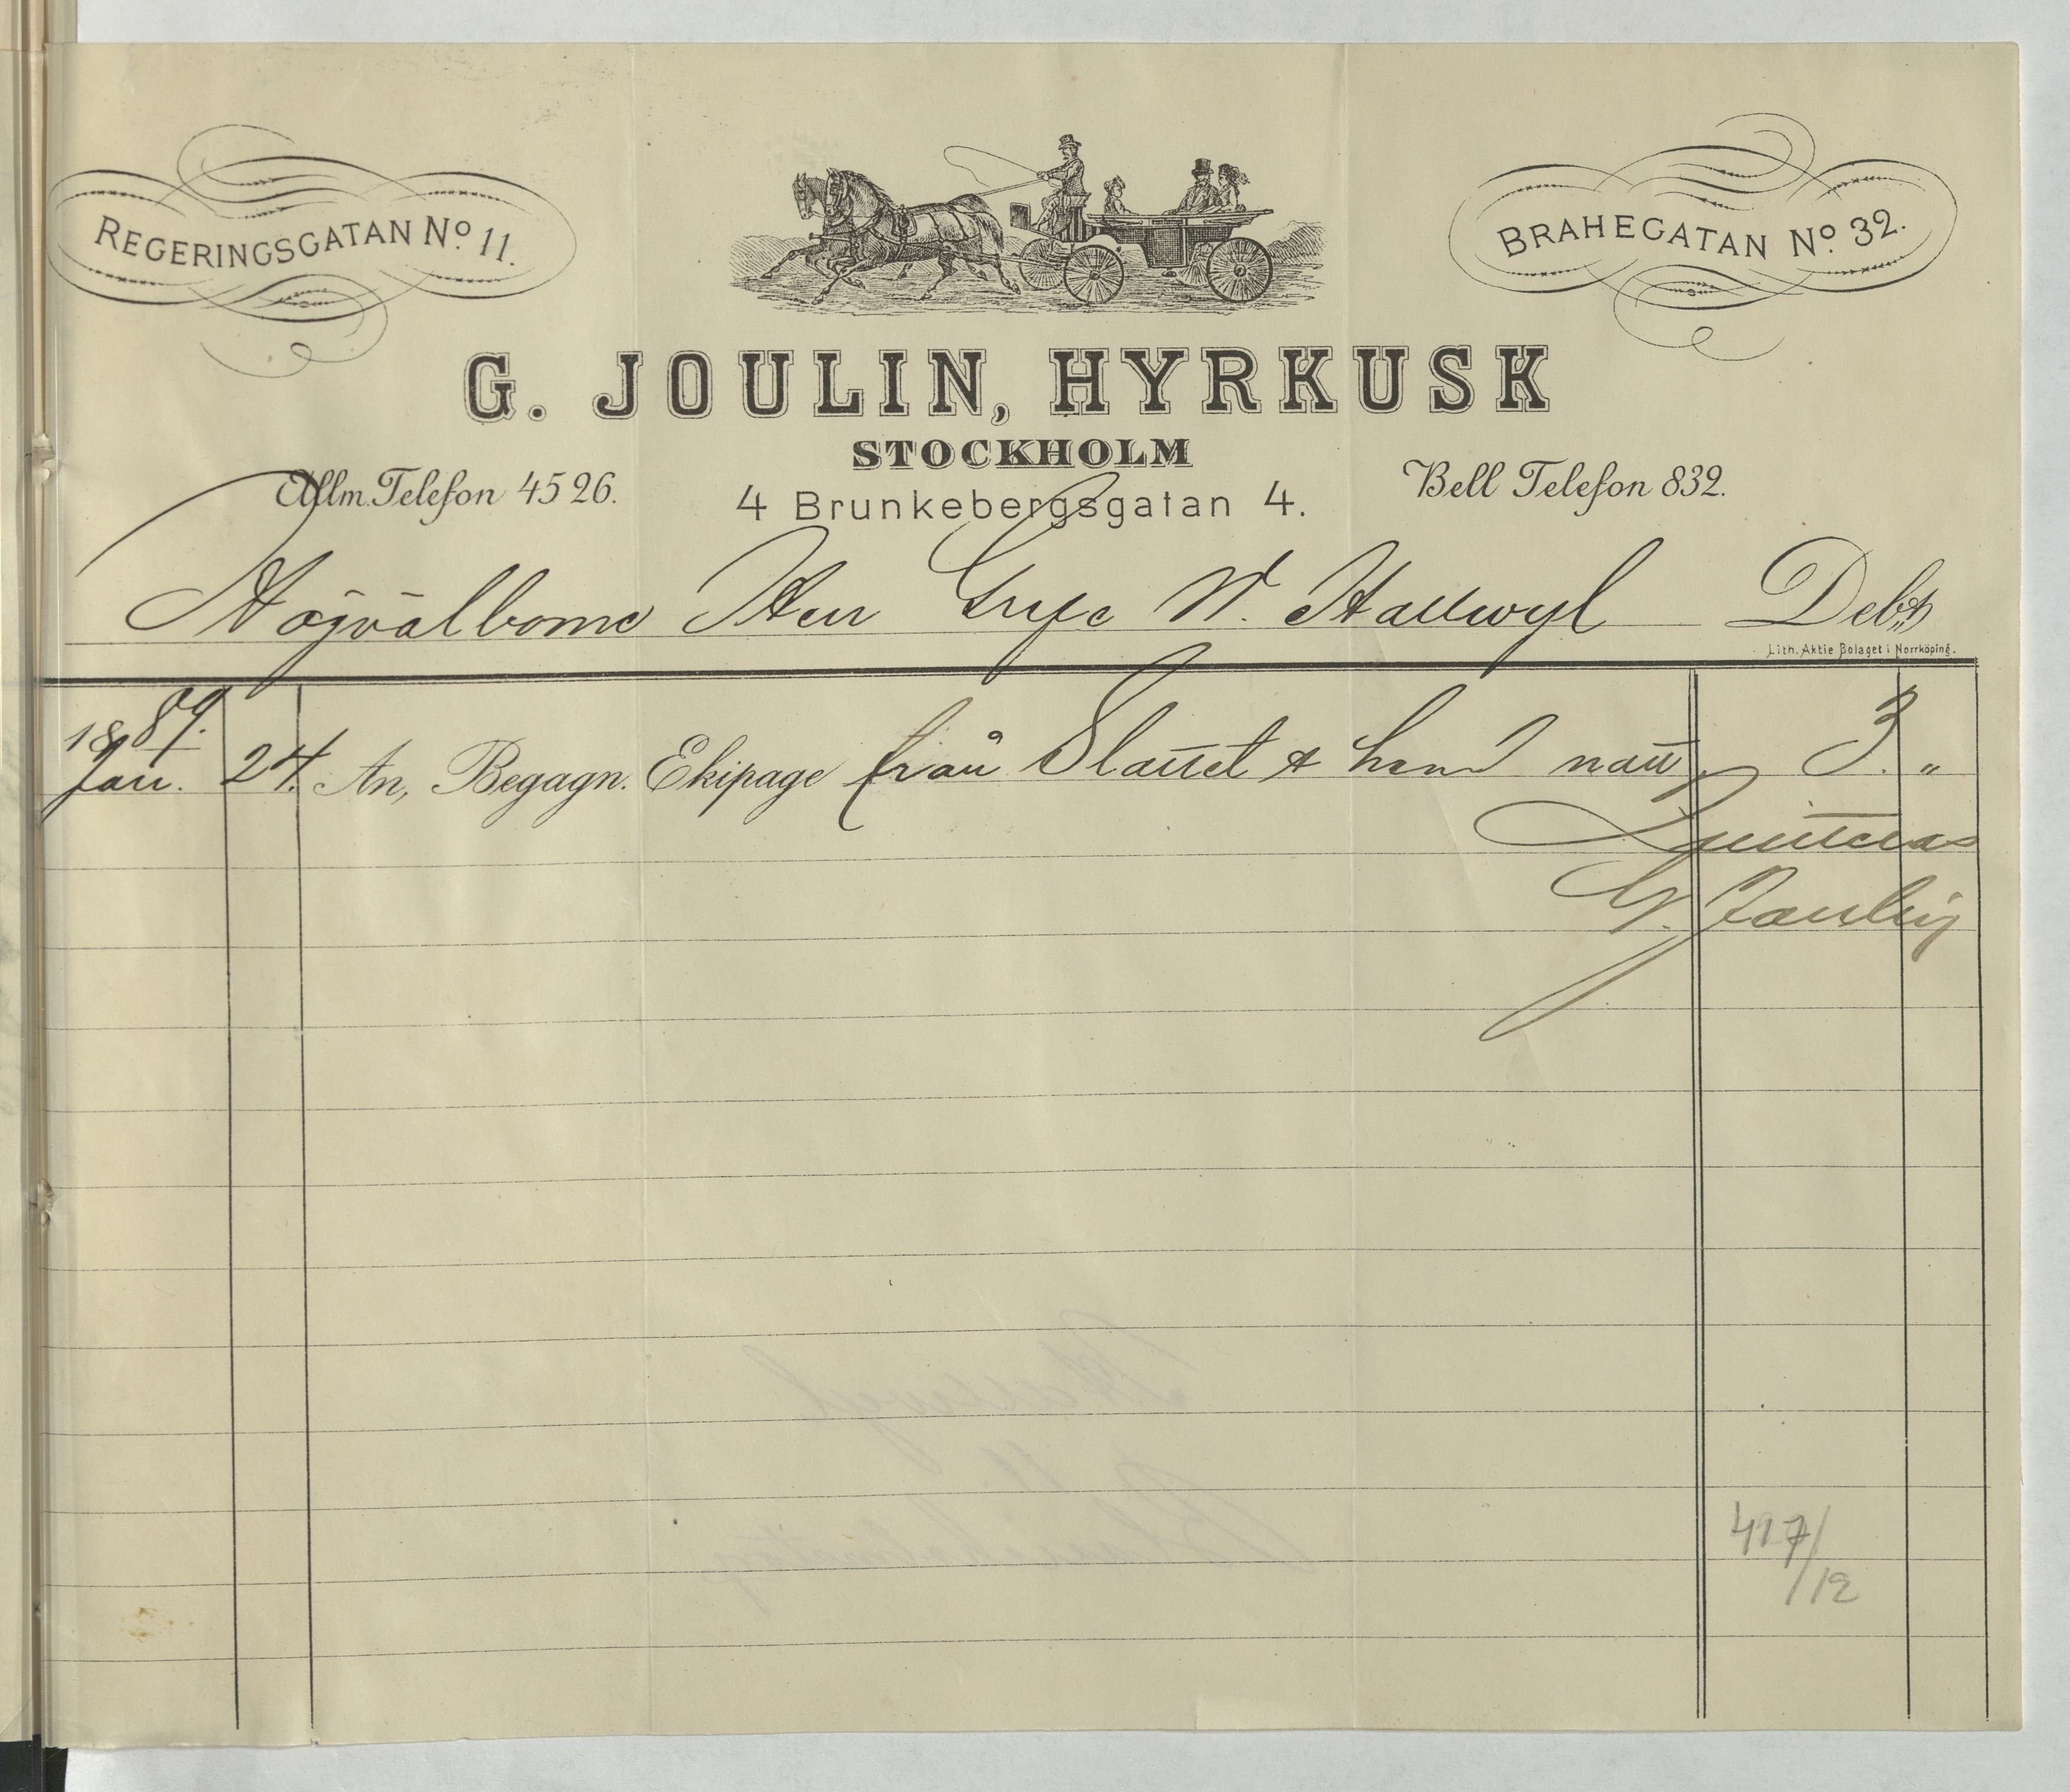 REGERINGSGATAN No 11.
BRAHEGATAN No 32.
G. JOULIN, HYRKUSK
STOCKHOLM
Allm. Telefon 4526.
4 Brunkebergsgatan 4.
Bell Telefon 832.
Högvälborne Herr Grefve W. Hallwyl Debet
Lith. Aktie Bolaget i Norrköping.
1889.
Jan. 24. An, Begagn. Ekipage från Slottet & hem natt 3. "
Qvitteras
G. Joulin
417/12